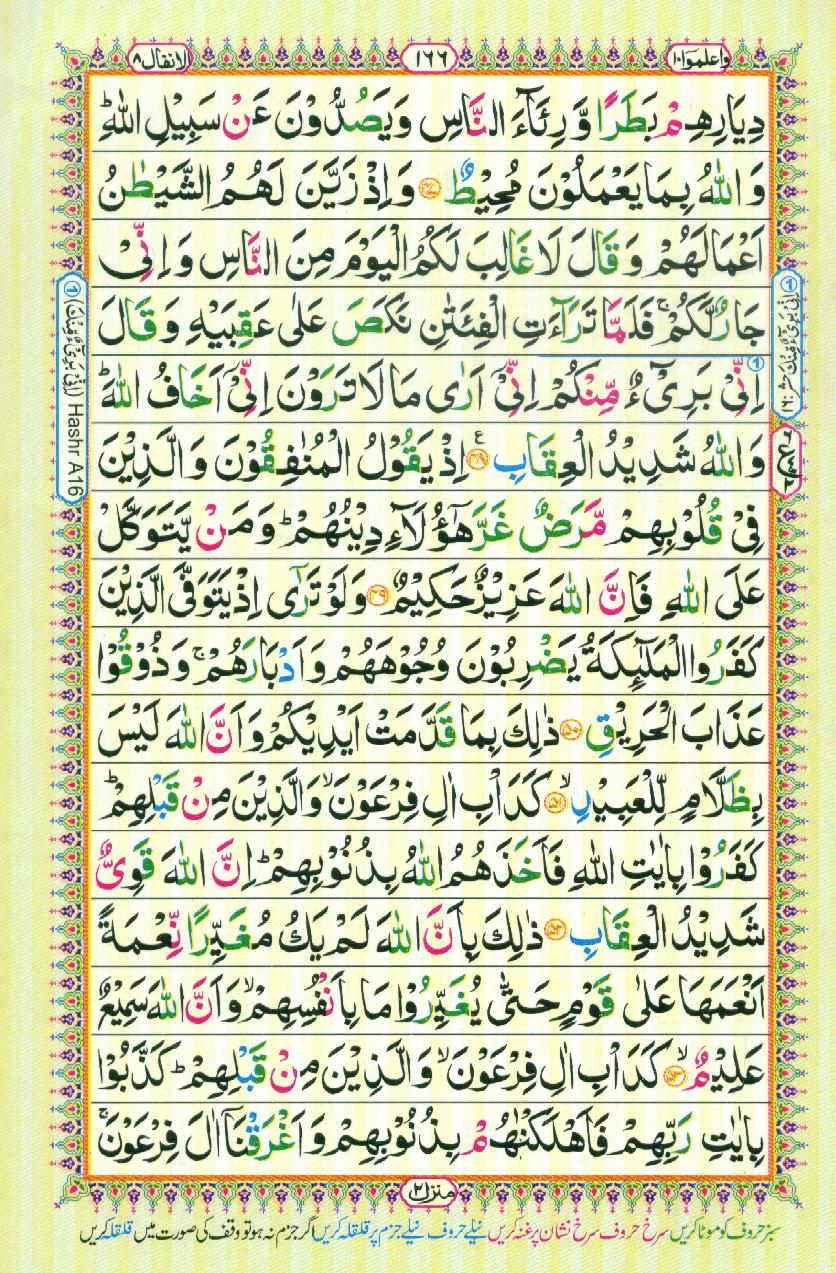 واعلموا ۱۰
۱۶۶
الانفال ۸
دِيَارِهِمْ بَطَرًا وَّ رِئَآءَ النَّاسِ وَيَصُدُّوْنَ عَنْ سَبِيْلِ اللّٰهِ ؕ
وَ اللّٰهُ بِمَا يَعْمَلُوْنَ مُحِيْطٌ ﴿۴۷﴾ وَ اِذْ زَيَّنَ لَهُمُ الشَّيْطٰنُ
اَعْمَالَهُمْ وَ قَالَ لَا غَالِبَ لَكُمُ الْيَوْمَ مِنَ النَّاسِ وَ اِنِّیْ
جَارٌ لَّكُمْ ۚ فَلَمَّا تَرَآءَتِ الْفِئَتٰنِ نَكَصَ عَلٰی عَقِبَيْهِ وَ قَالَ
اِنِّیْ بَرِیْٓءٌ مِّنْكُمْ اِنِّیْۤ اَرٰی مَا لَا تَرَوْنَ اِنِّیْۤ اَخَافُ اللّٰهَ ؕ
وَ اللّٰهُ شَدِيْدُ الْعِقَابِ ﴿۴۸﴾ ع اِذْ يَقُوْلُ الْمُنٰفِقُوْنَ وَ الَّذِيْنَ
فِیْ قُلُوْبِهِمْ مَّرَضٌ غَرَّ هٰۤؤُلَآءِ دِيْنُهُمْ ؕ وَ مَنْ يَّتَوَكَّلْ
عَلَی اللّٰهِ فَاِنَّ اللّٰهَ عَزِيْزٌ حَكِيْمٌ ﴿۴۹﴾ وَ لَوْ تَرٰۤی اِذْ يَتَوَفَّی الَّذِيْنَ
كَفَرُوا الْمَلٰٓئِكَةُ يَضْرِبُوْنَ وُجُوْهَهُمْ وَ اَدْبَارَهُمْ ۚ وَ ذُوْقُوْا
عَذَابَ الْحَرِيْقِ ﴿۵۰﴾ ذٰلِكَ بِمَا قَدَّمَتْ اَيْدِيْكُمْ وَ اَنَّ اللّٰهَ لَيْسَ
بِظَلَّامٍ لِّلْعَبِيْدِ ۙ﴿۵۱﴾ كَدَاْبِ اٰلِ فِرْعَوْنَ ۙ وَ الَّذِيْنَ مِنْ قَبْلِهِمْ ؕ
كَفَرُوْا بِاٰيٰتِ اللّٰهِ فَاَخَذَهُمُ اللّٰهُ بِذُنُوْبِهِمْ ؕ اِنَّ اللّٰهَ قَوِیٌّ
شَدِيْدُ الْعِقَابِ ﴿۵۲﴾ ذٰلِكَ بِاَنَّ اللّٰهَ لَمْ يَكُ مُغَيِّرًا نِّعْمَةً
اَنْعَمَهَا عَلٰی قَوْمٍ حَتّٰی يُغَيِّرُوْا مَا بِاَنْفُسِهِمْ ۙ وَ اَنَّ اللّٰهَ سَمِيْعٌ
عَلِيْمٌ ۙ﴿۵۳﴾ كَدَاْبِ اٰلِ فِرْعَوْنَ ۙ وَ الَّذِيْنَ مِنْ قَبْلِهِمْ ؕ كَذَّبُوْا
بِاٰيٰتِ رَبِّهِمْ فَاَهْلَكْنٰهُمْ بِذُنُوْبِهِمْ وَ اَغْرَقْنَاۤ اٰلَ فِرْعَوْنَ ۚ
① اِنِّیْ بَرِیْٓءٌ مِّنْكَ حشر ۱۶
① (اِنِّیْ بَرِیْٓءٌ مِّنْكَ) Hashr A16
منزل ۲
سبز حروف کو موٹا کریں سرخ حروف سرخ نشان پر غنہ کریں نیلے حروف نیلے جزم پر قلقلہ کریں اگر جزم نہ ہو تو وقف کی صورت میں قلقلہ کریں